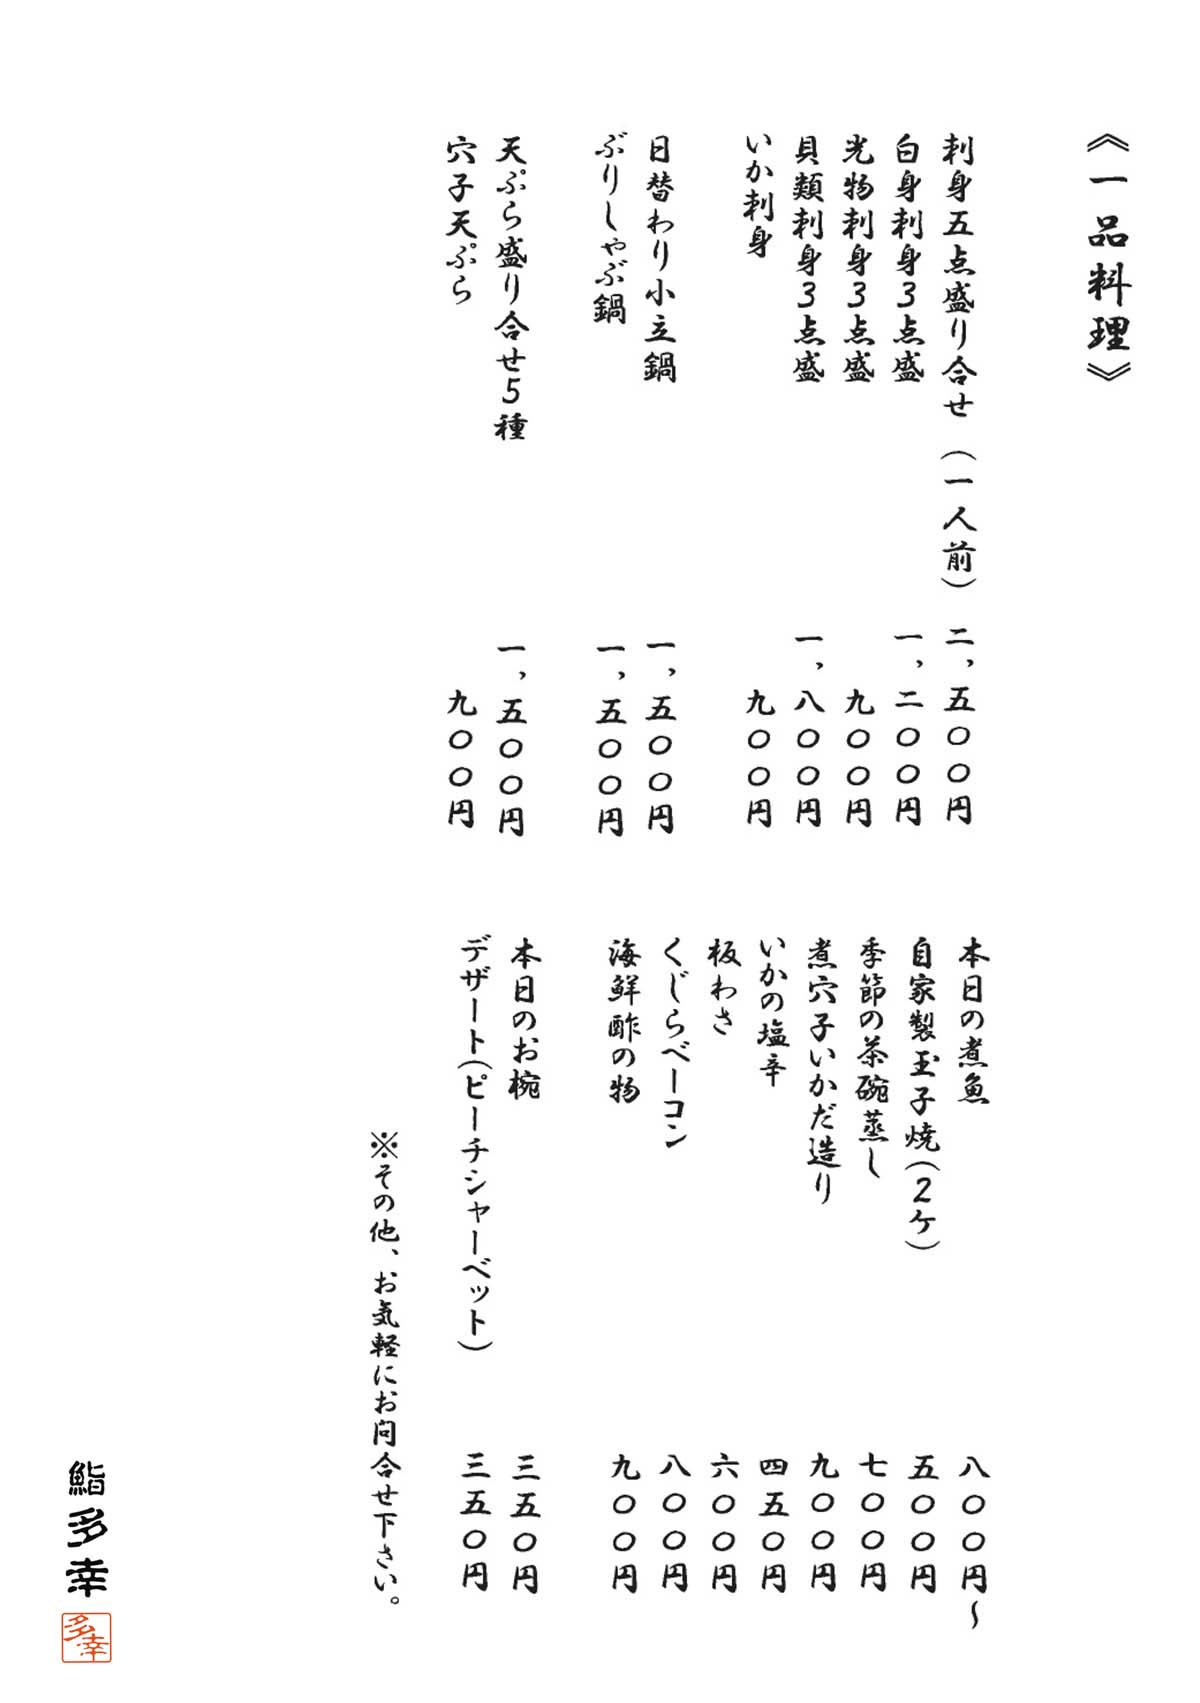 《一品料理》
刺身五点盛り合せ（一人前） 二,五〇〇円
白身刺身3点盛 一,二〇〇円
光物刺身3点盛 九〇〇円
貝類刺身3点盛 一,八〇〇円
いか刺身 九〇〇円
日替わり小立鍋 一,五〇〇円
ぶりしゃぶ鍋 一,五〇〇円
天ぷら盛り合せ5種 一,五〇〇円
穴子天ぷら 九〇〇円
本日の煮魚 八〇〇円〜
自家製玉子焼（2ケ） 五〇〇円
季節の茶碗蒸し 七〇〇円
煮穴子いかだ造り 九〇〇円
いかの塩辛 四五〇円
板わさ 六〇〇円
くじらベーコン 八〇〇円
海鮮酢の物 九〇〇円
本日のお椀 三五〇円
デザート（ピーチシャーベット） 三五〇円
※その他、お気軽にお問合せ下さい。
鮨 多幸
多幸